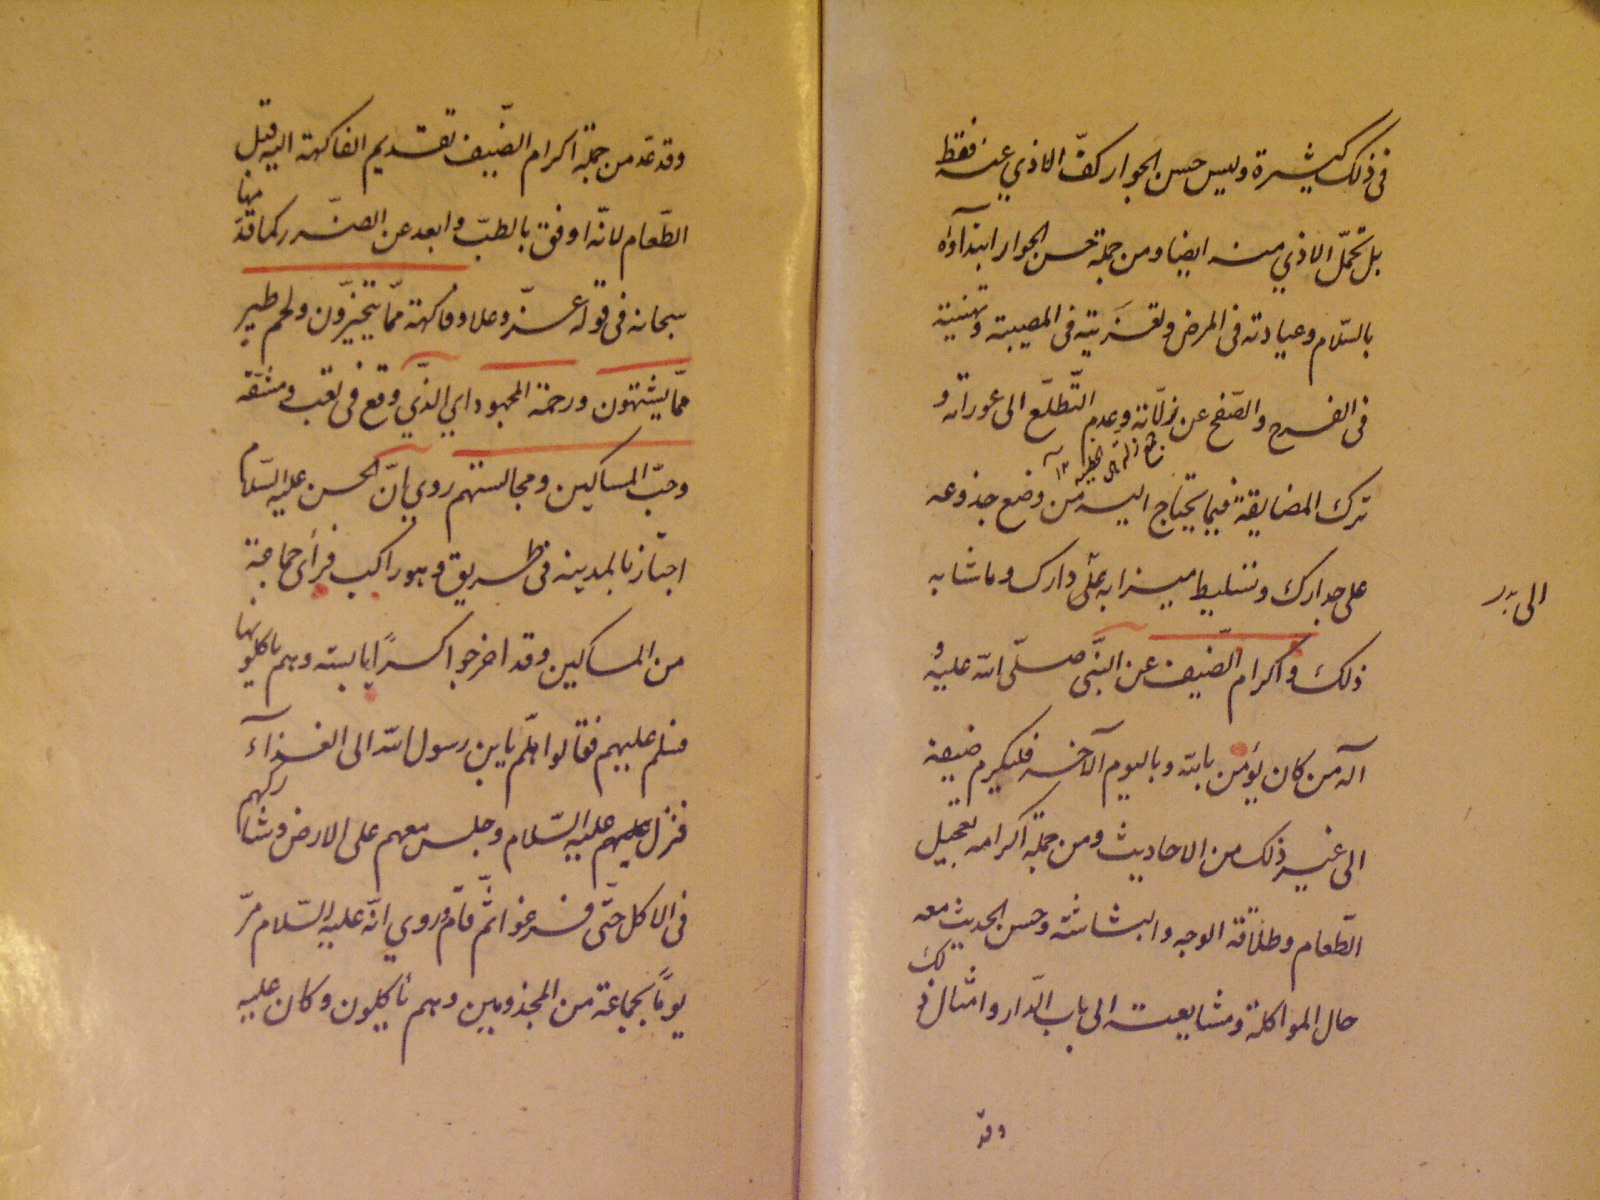 فى ذلك كثيرة وليس حسن الجوار كفّ الاذي عنه فقط
بل تحمّل الاذي منه ايضا ومن جملة حسن الجوار ابتدآؤه
بالسّلام وعيادته فى المرض وتعزيته فى المصيبة وتهنيته
فى الفرح والصّفح عن زلّاته وعدم التّطلّع الى عوراته و
ترك المضايقة فيما يحتاج اليه من وضع جذوعه
على جدارك وتسليط ميزابه على دارك وما شابه
الى
ذلك واكرام الضّيف عن النبّى صلّى الله عليه و
آله من كان يؤمن بالله وباليوم الآخر فليكرم ضيفه
الى غير ذلك من الاحاديث ومن جملة اكرامه تعجيل
الطّعام وطلاقة الوجه والبشاشة وحسن الحديث معه
حال المواكلة ومشايعته الى باب الدّار وامثال ذلك
وقد
وقد عدّ من جملة اكرام الضّيف تقديم الفاكهة اليه قبل
الطّعام لانّه اوفق بالطبّ وابعد عن الضّرر كما قدّمها
سبحانه فى قوله عزّ وعلا وفاكهة ممّا يتخيّرون ولحم طير
ممّا يشتهون ورحمة المجهود اي الذّي وقع فى تعب ومشقّة
وحبّ المساكين ومجالستهم روي انّ الحسن عليه السّلام
اجتاز بالمدينة فى طريق وهو راكب فرأى جماعة
من المساكين وقد اخرجوا كسرًا يابسة وهم ياكلونها
فسلم عليهم فقالوا هلّم يابن رسول الله الى الغذآء
فنزل عليهم عليه السّلام وجلس معهم على الارض وشاركهم
فى الاكل حتّى فرغوا ثمّ قام وروي انّه عليه السّلام مرّ
يومًا بجماعة من المجذومين وهم ياكلون وكان عليه